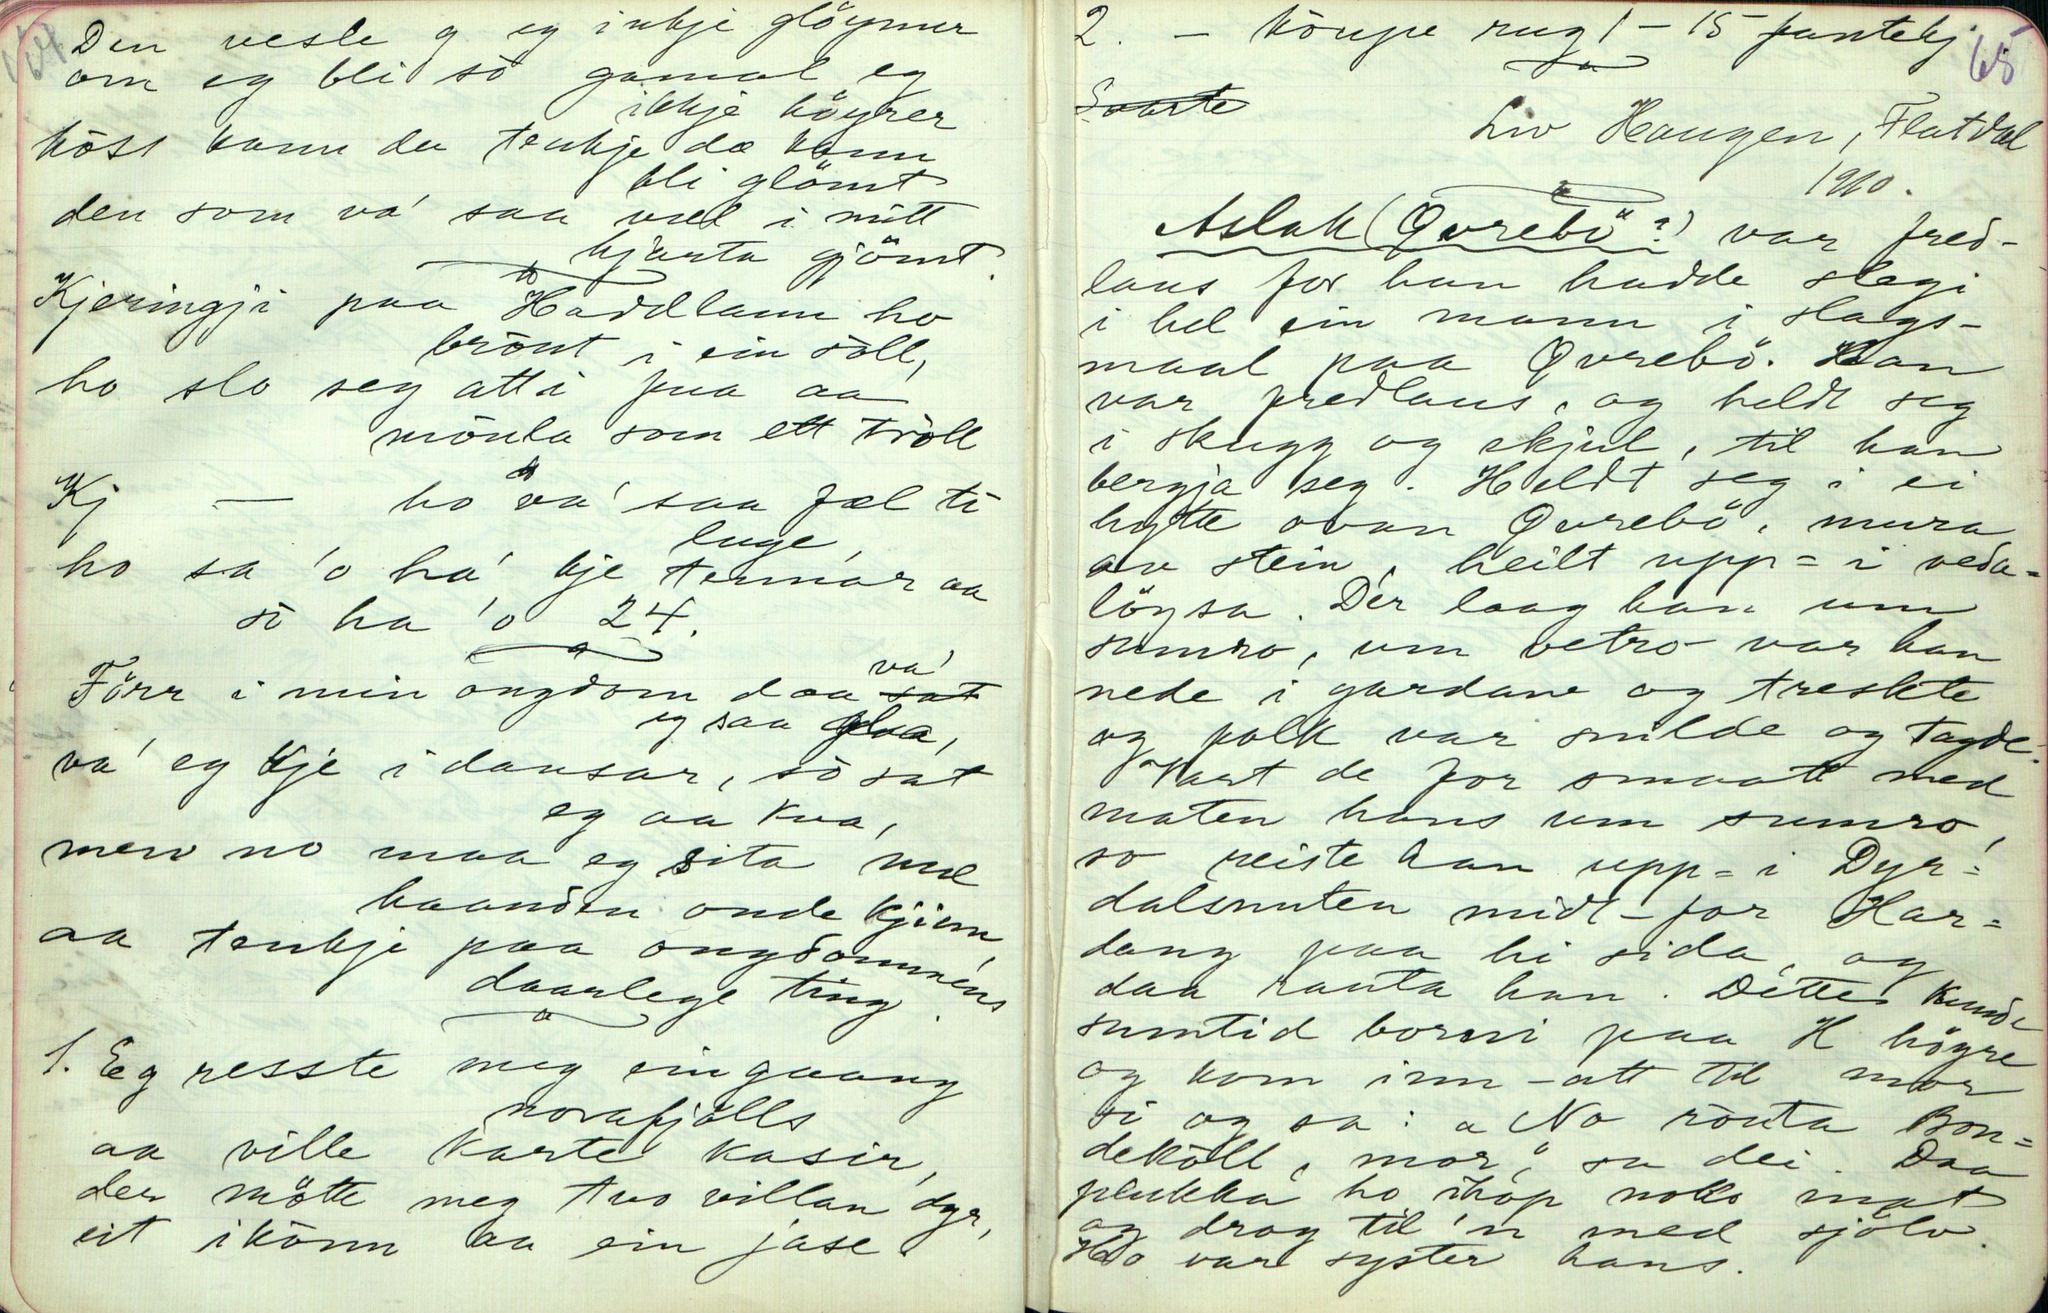 Den vesle g eg inkje glöymer
om eg bli sò gamal eg
ikkje höyrer
hòss kann du tenkje dæ kann
bli glömt
den som va' saa vel i mitt
hjarta gjömt.
Kjeringji paa Haddlann ho
brönt i ein söll,
ho slo seg atti fua aa
mònla som ett tròll
Kj — ho va' saa fæl ti
luge,
ho sa 'o ha' kje tennar aa
sò ha 'o 24.
Förr i min ongdom daa va' sat
eg saa glaa,
va' eg kje i dansar, sò sat
eg aa kva,
men no maa eg sita mæ
haanden onde kjinn,
aa tenkje paa ongdommens
daarlege ting.
1. Eg resste meg ein gaang
norafjölls
aa ville karte kasir,
der mötte meg tvo villan dyr,
eit ikònn aa ein jase.
2. — kòupe rug! — 15 fantekj.
65
Svarte
Liv Haugen, Flatdal
1910.
Aslak (Øvrebö?) var fred-
laus for han hadde slegi
i hel ein mann i slags-
maal paa Øvrebö. Han
var fredlaus, og heldt seg
i skugg og skjul, til han
bergja seg. Heldt seg i ei
hytte ovan Øvrebö, mura
av stein, heilt upp-i veda-
löysa. Dér laag han um
sumro, um vetro var han
nede i gardane og treskte
og folk var snilde og tagde.
Vart de for smaatt med
maten hans um sumro,
so reiste han upp-i Dyr-
dalsnuten midt-for Har-
dang paa hi sida, og
daa ranta han. Dette kunde
sumtid borni paa H högre
og kom inn-att til mor
si og sa: "No rònta Bon-
deköll, mor," sa dei. Daa
plukka ho ihop noko mat
og drog til 'n med sjölv.
Ho var syster hans.